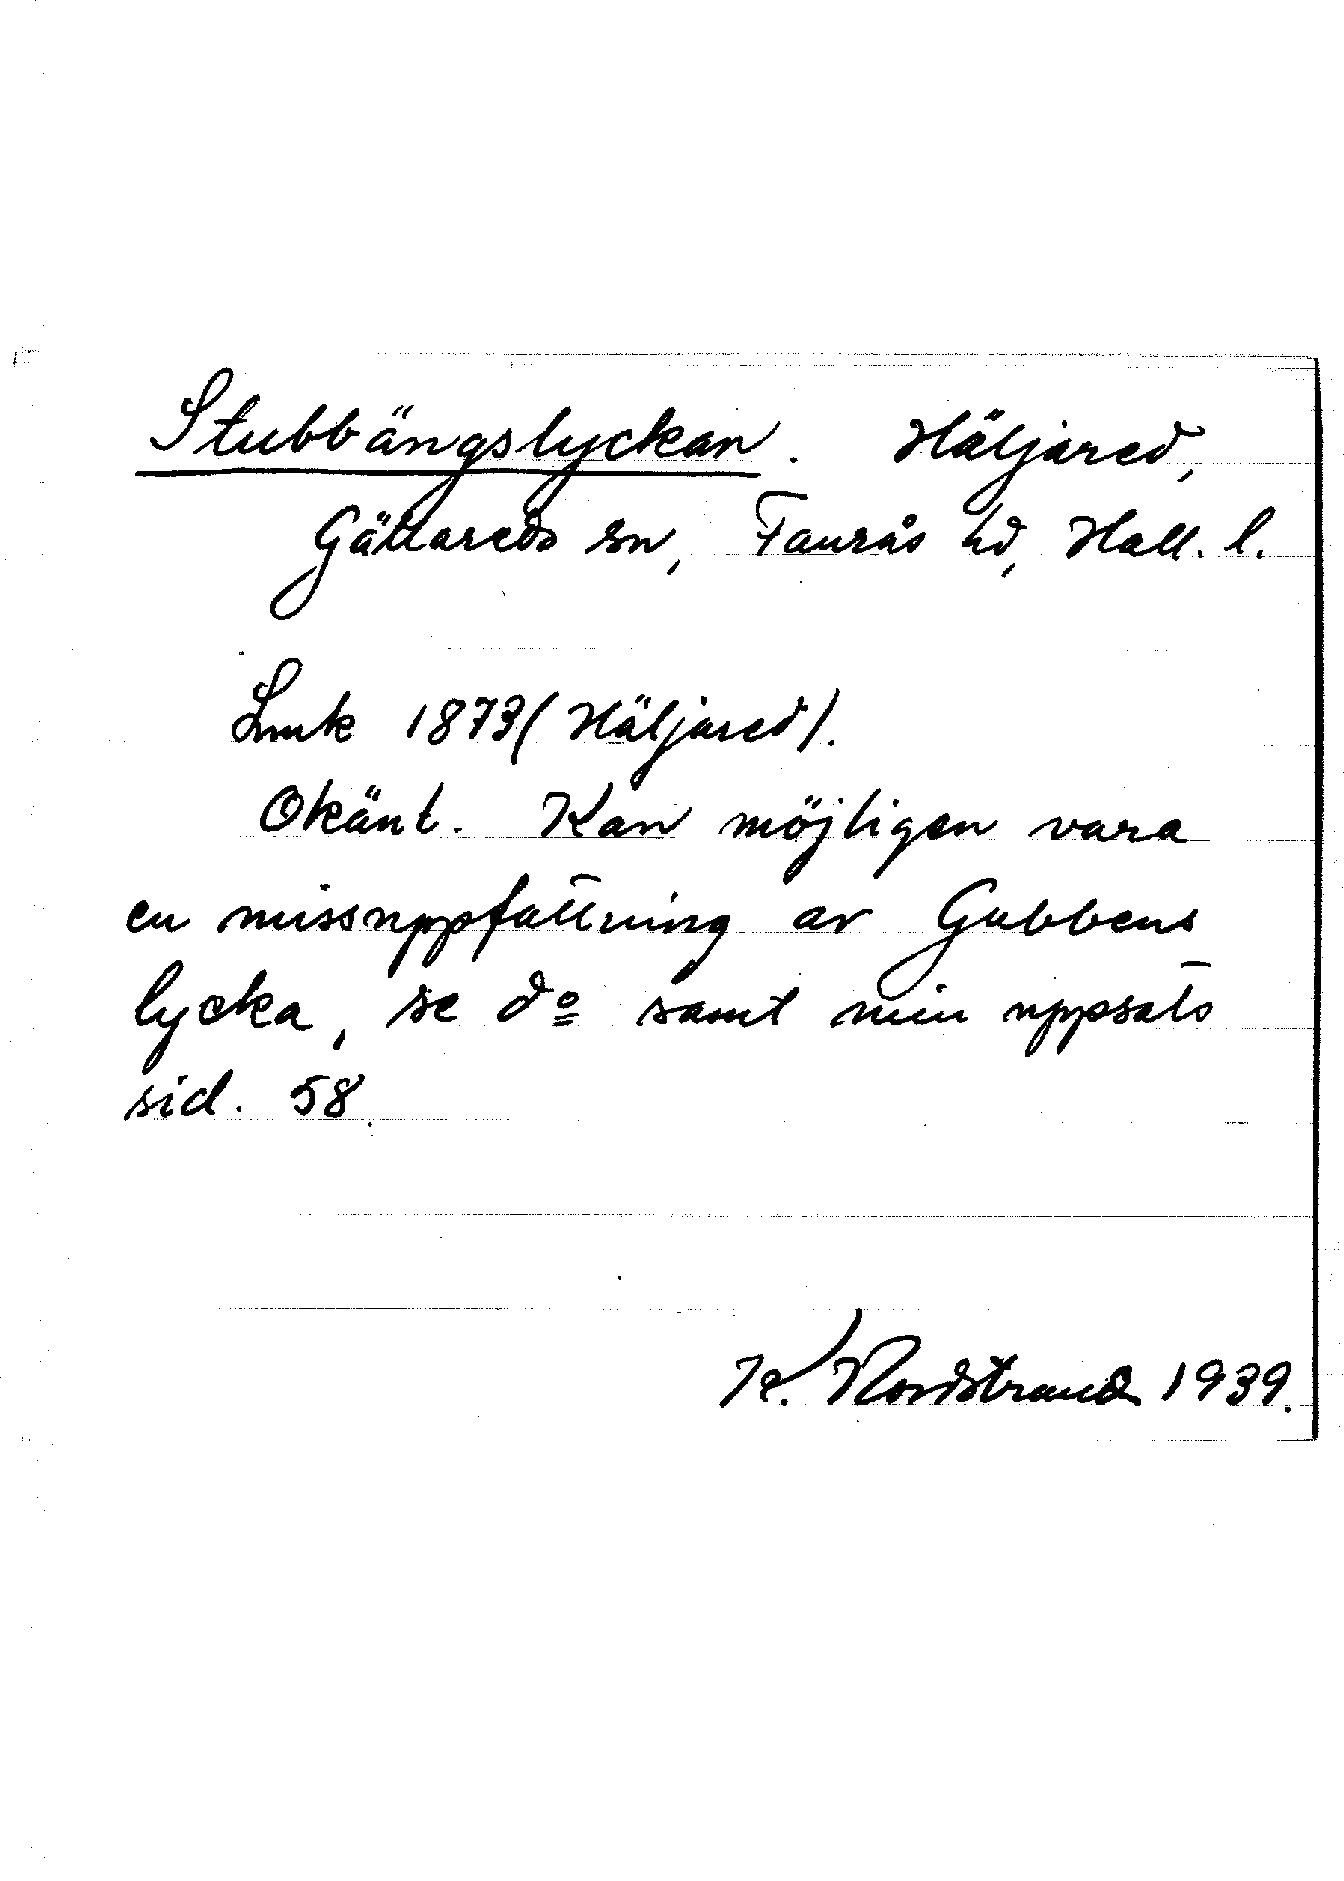 Stubbängslyckan. Häljared,
Gällareds sn, Faurås hd, Hall. l.
Lmk 1873 (Häljared).
Okänt. Kan möjligen vara
en missuppfattning av Gubbens
lycka, se do samt min uppsats
sid. 58.
K. Nordstrand 1939.